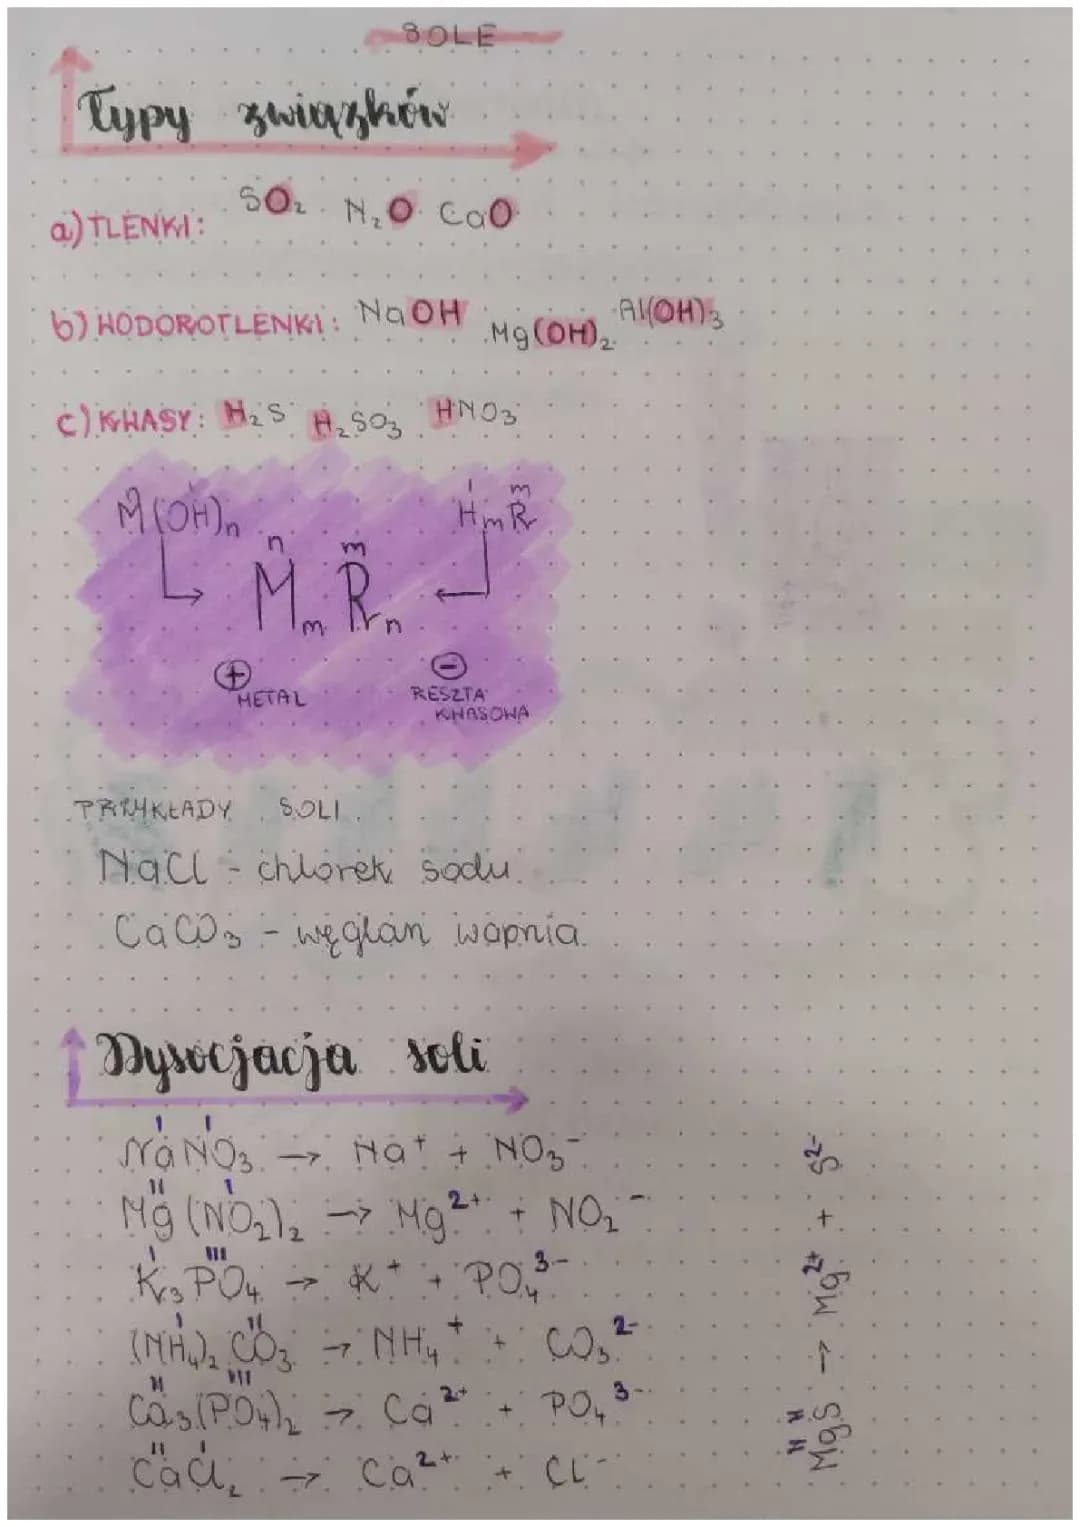 SOLE
Typy związków
a) TLENKI: SO₂ N₂O CaO
b) WODOROTLENKI: NaOH Mg(OH)₂ Al(OH)₃
c) KWASY: H₂S H₂SO₃ HNO₃
M(OH)n I m HmR
n m
Mm Rn
⊕ ⊖
METAL RESZTA
KWASOWA
PRZYKŁADY SOLI
NaCl - chlorek sodu
CaCO₃ - węglan wapnia
Dysocjacja soli
I I
NaNO₃ → Na⁺ + NO₃⁻
II I
Mg(NO₂)₂ → Mg²⁺ + NO₂⁻
I III
K₃PO₄ → K⁺ + PO₄³⁻
I II
(NH₄)₂CO₃ → NH₄⁺ + CO₃²⁻
II III
Ca₃(PO₄)₂ → Ca²⁺ + PO₄³⁻
II I
CaCl₂ → Ca²⁺ + Cl⁻
II II
MgS → Mg²⁺ + S²⁻